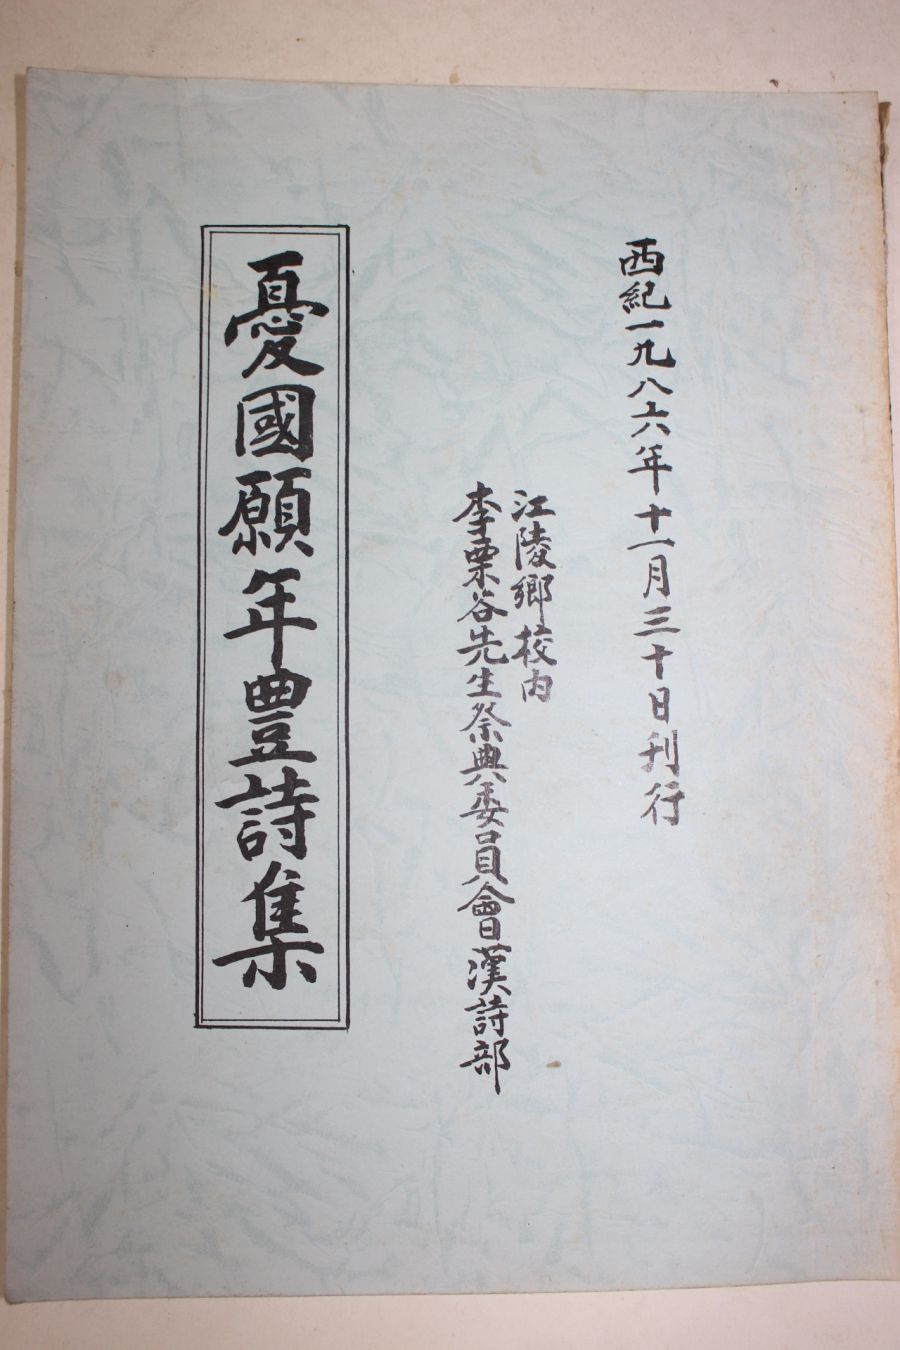 西紀一九八六年十一月三十日刊行
江陵鄕校內
李栗谷先生祭典委員會漢詩部
憂國願年豊詩集